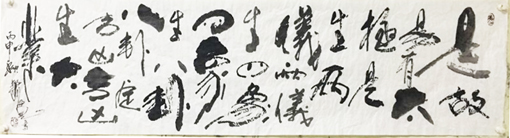 是故
易有太
極是
生兩
儀兩儀
生四象
四象
生八卦
八卦定
吉凶吉凶
生大
業
丙申